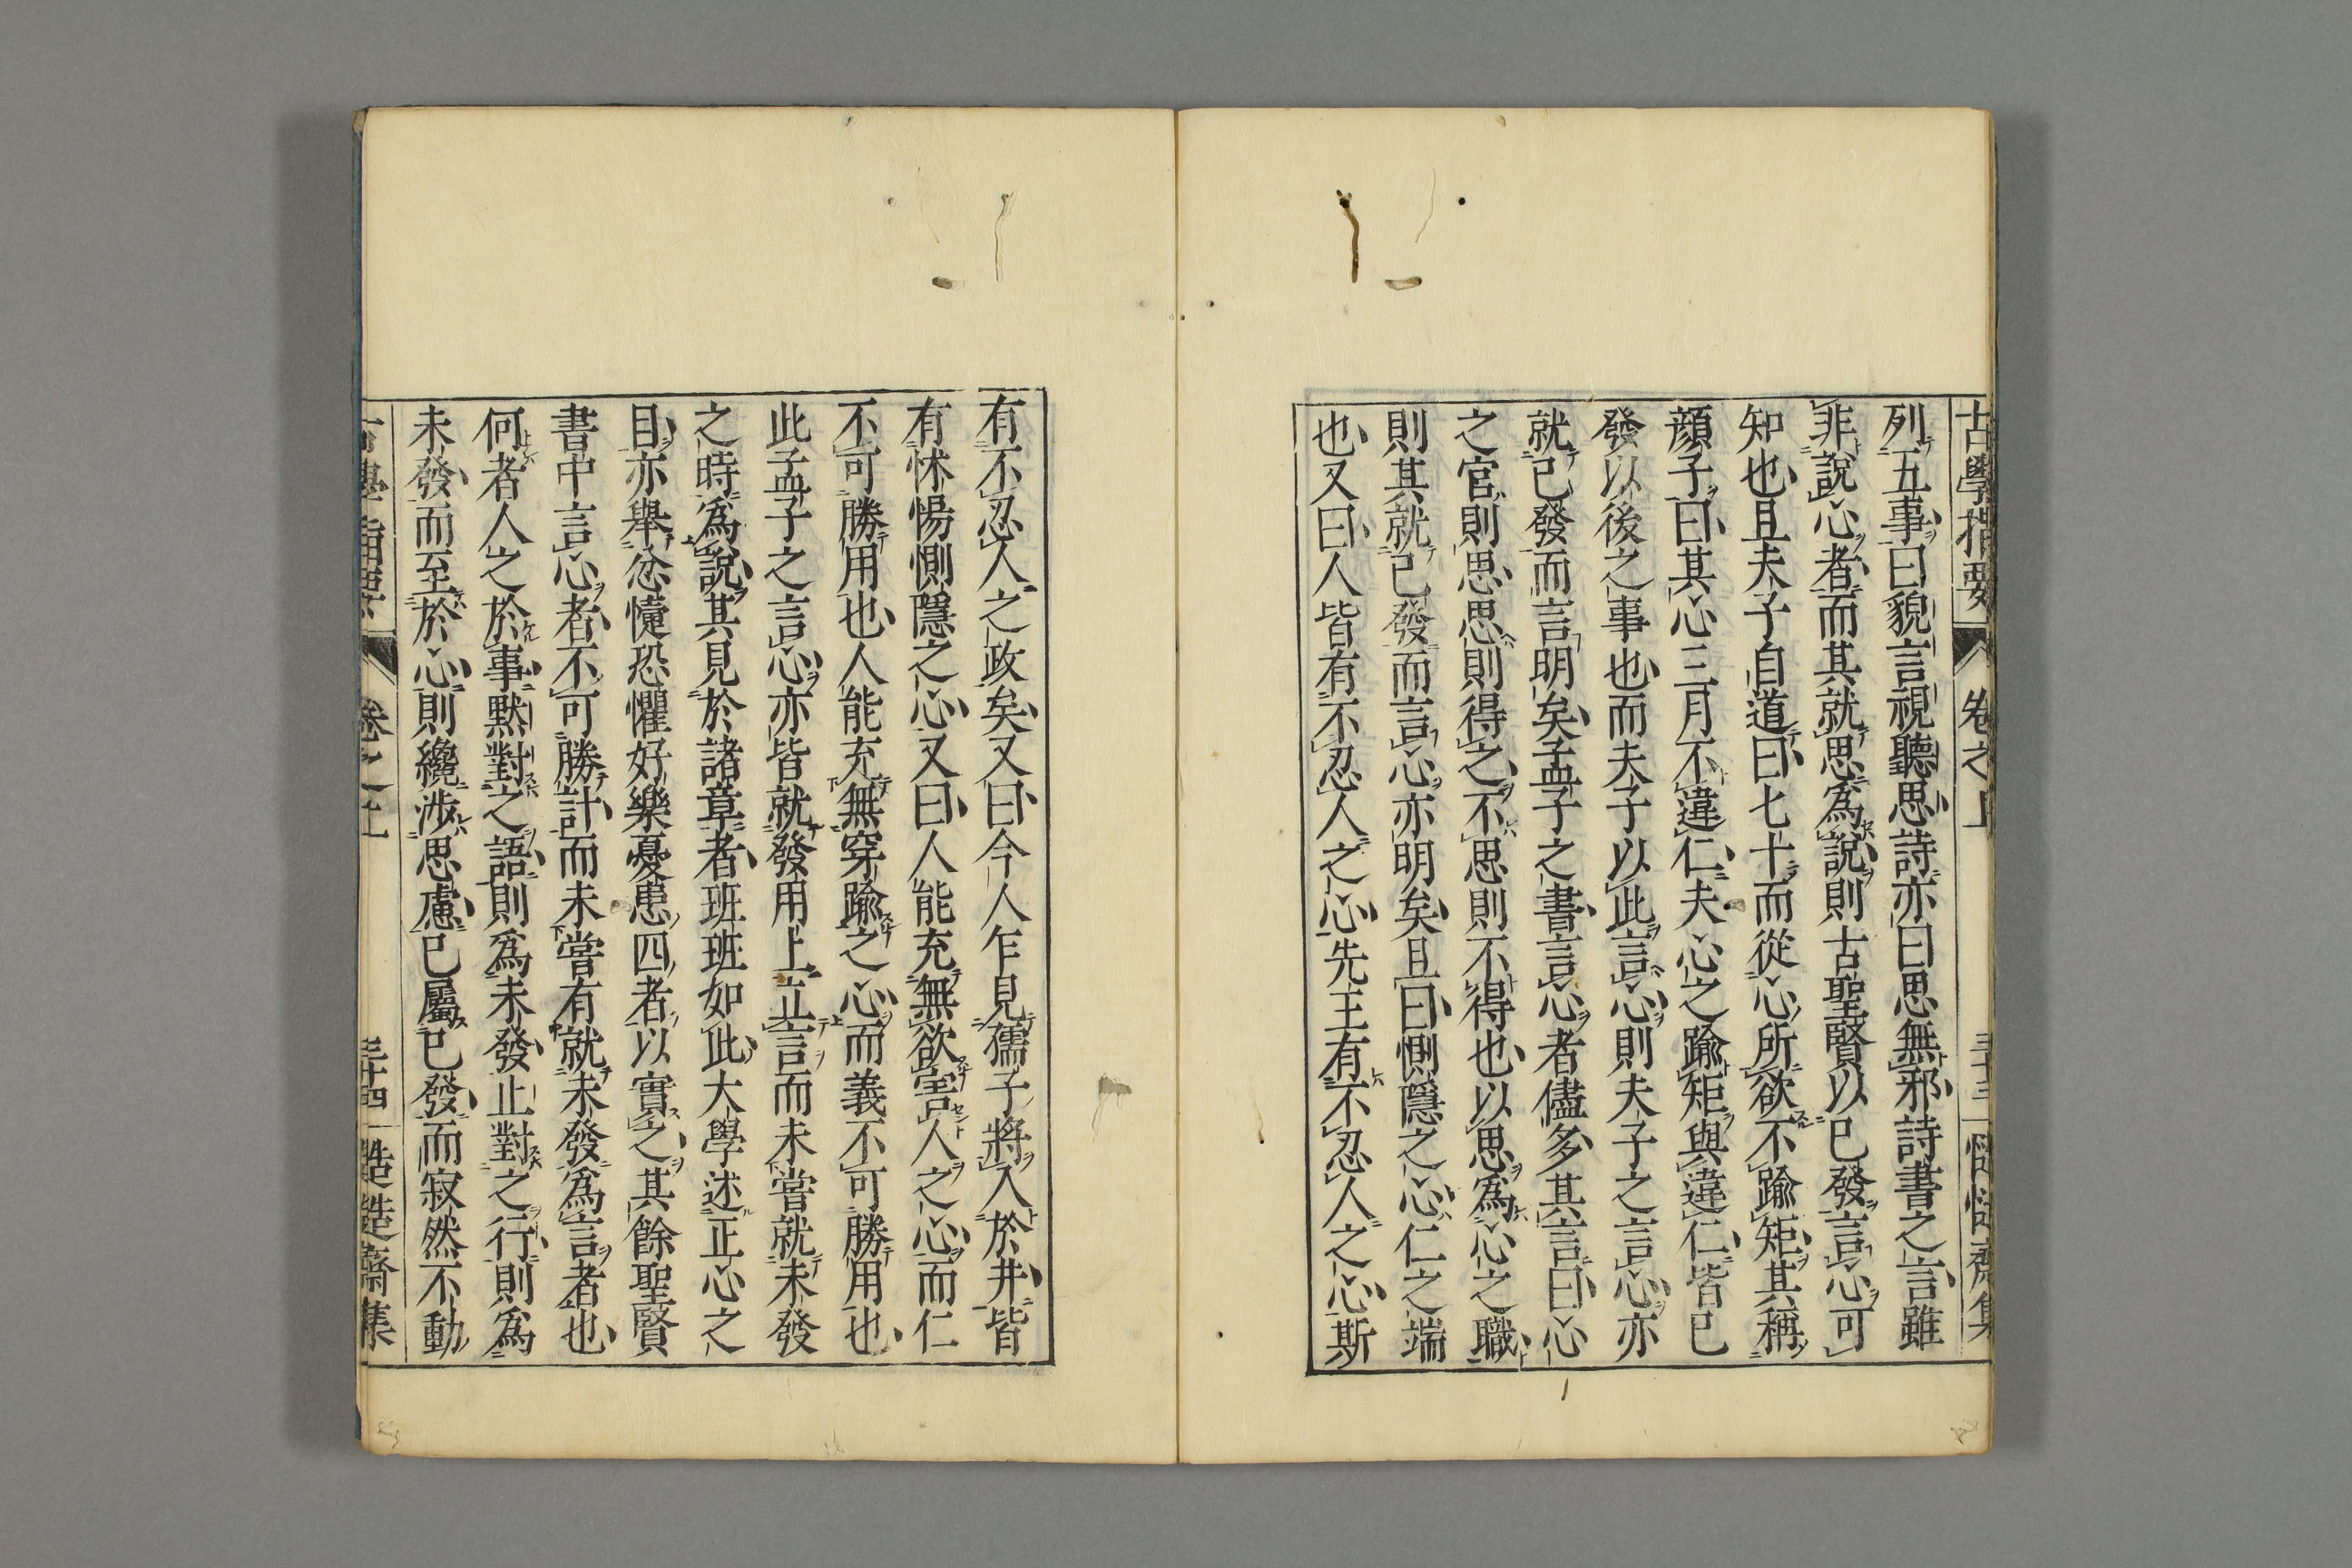 古學指要 卷之上 三十三 慥慥齋集
列五事曰貌言視聽思詩亦曰思無邪詩書之言雖
非說心者而其就思爲說則古聖賢以已發言心可
知也且夫子自道曰七十而從心所欲不踰矩其稱
顏子曰其心三月不違仁夫心之踰矩與違仁皆已
發以後之事也而夫子以此言心則夫子之言心亦
就已發而言明矣孟子之書言心者儘多其言曰心
之官則思思則得之不思則不得也以思爲心之職
則其就已發而言心亦明矣且曰惻隱之心仁之端
也又曰人皆有不忍人之心先王有不忍人之心斯
有不忍人之政矣又曰今人乍見孺子將入於井皆
有怵惕惻隱之心又曰人能充無欲害人之心而仁
不可勝用也人能充無穿踰之心而義不可勝用也
此孟子之言心亦皆就發用上立言而未嘗就未發
之時爲說其見於諸章者班班如此大學述正心之
目亦舉忿懥恐懼好樂憂患四者以實之其餘聖賢
書中言心者不可勝計而未嘗有就未發爲言者也
何者人之於事默對之語則爲未發止對之行則爲
未發而至於心則纔涉思慮已屬已發而寂然不動
古學指要 卷之上 三十四 慥慥齋集